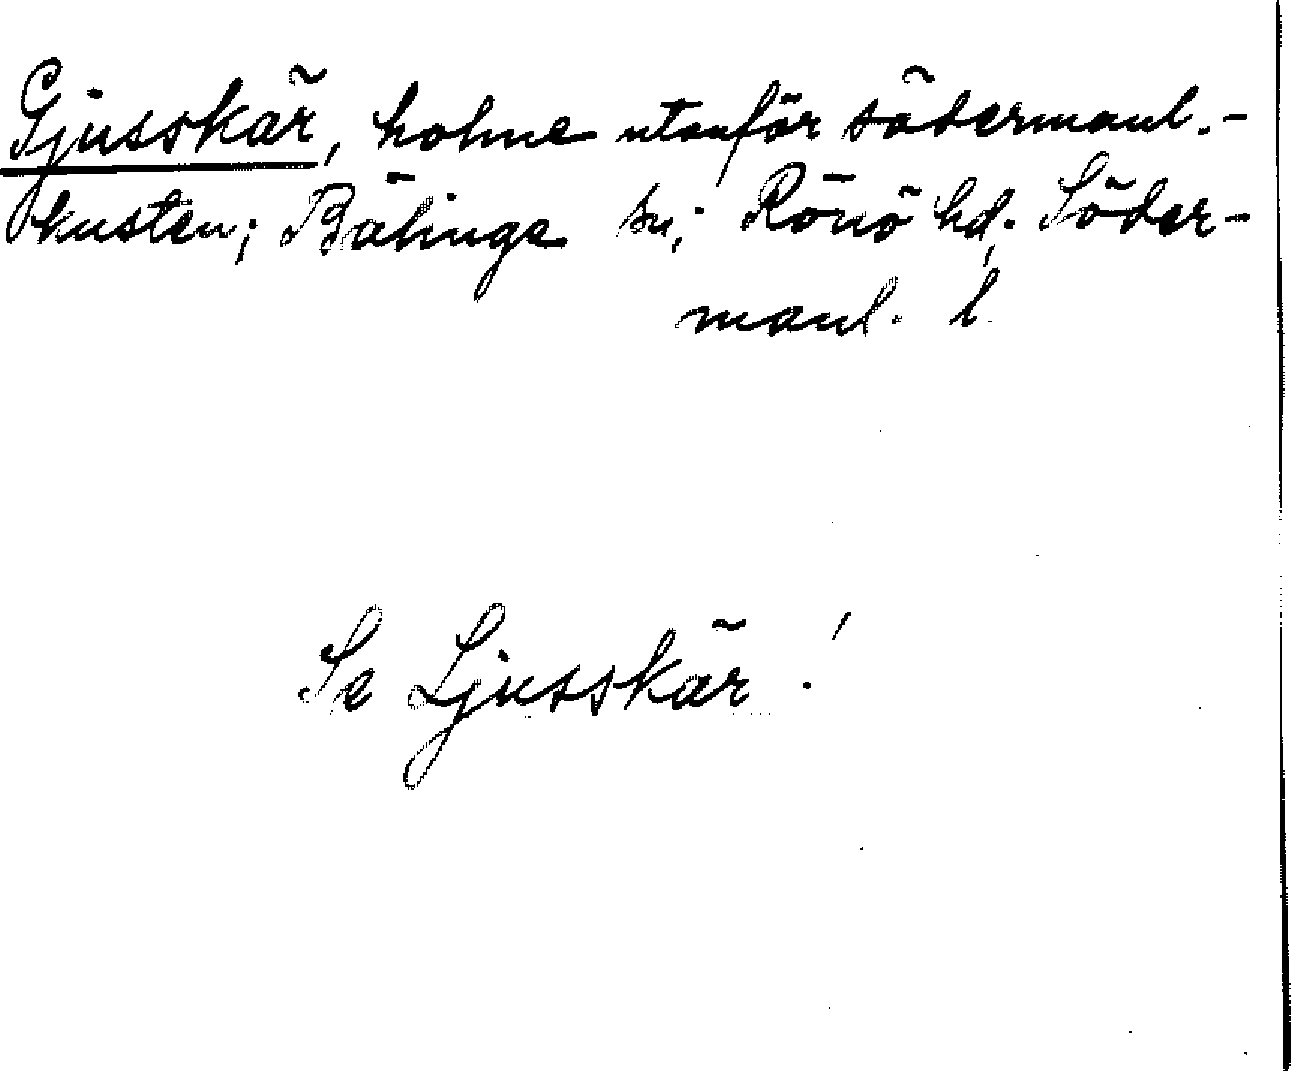 Gjusskär, holme utanför södermanl.-
kusten; Bälinge sn; Rönö hd. Söder-
manl. l
Se Ljusskär!